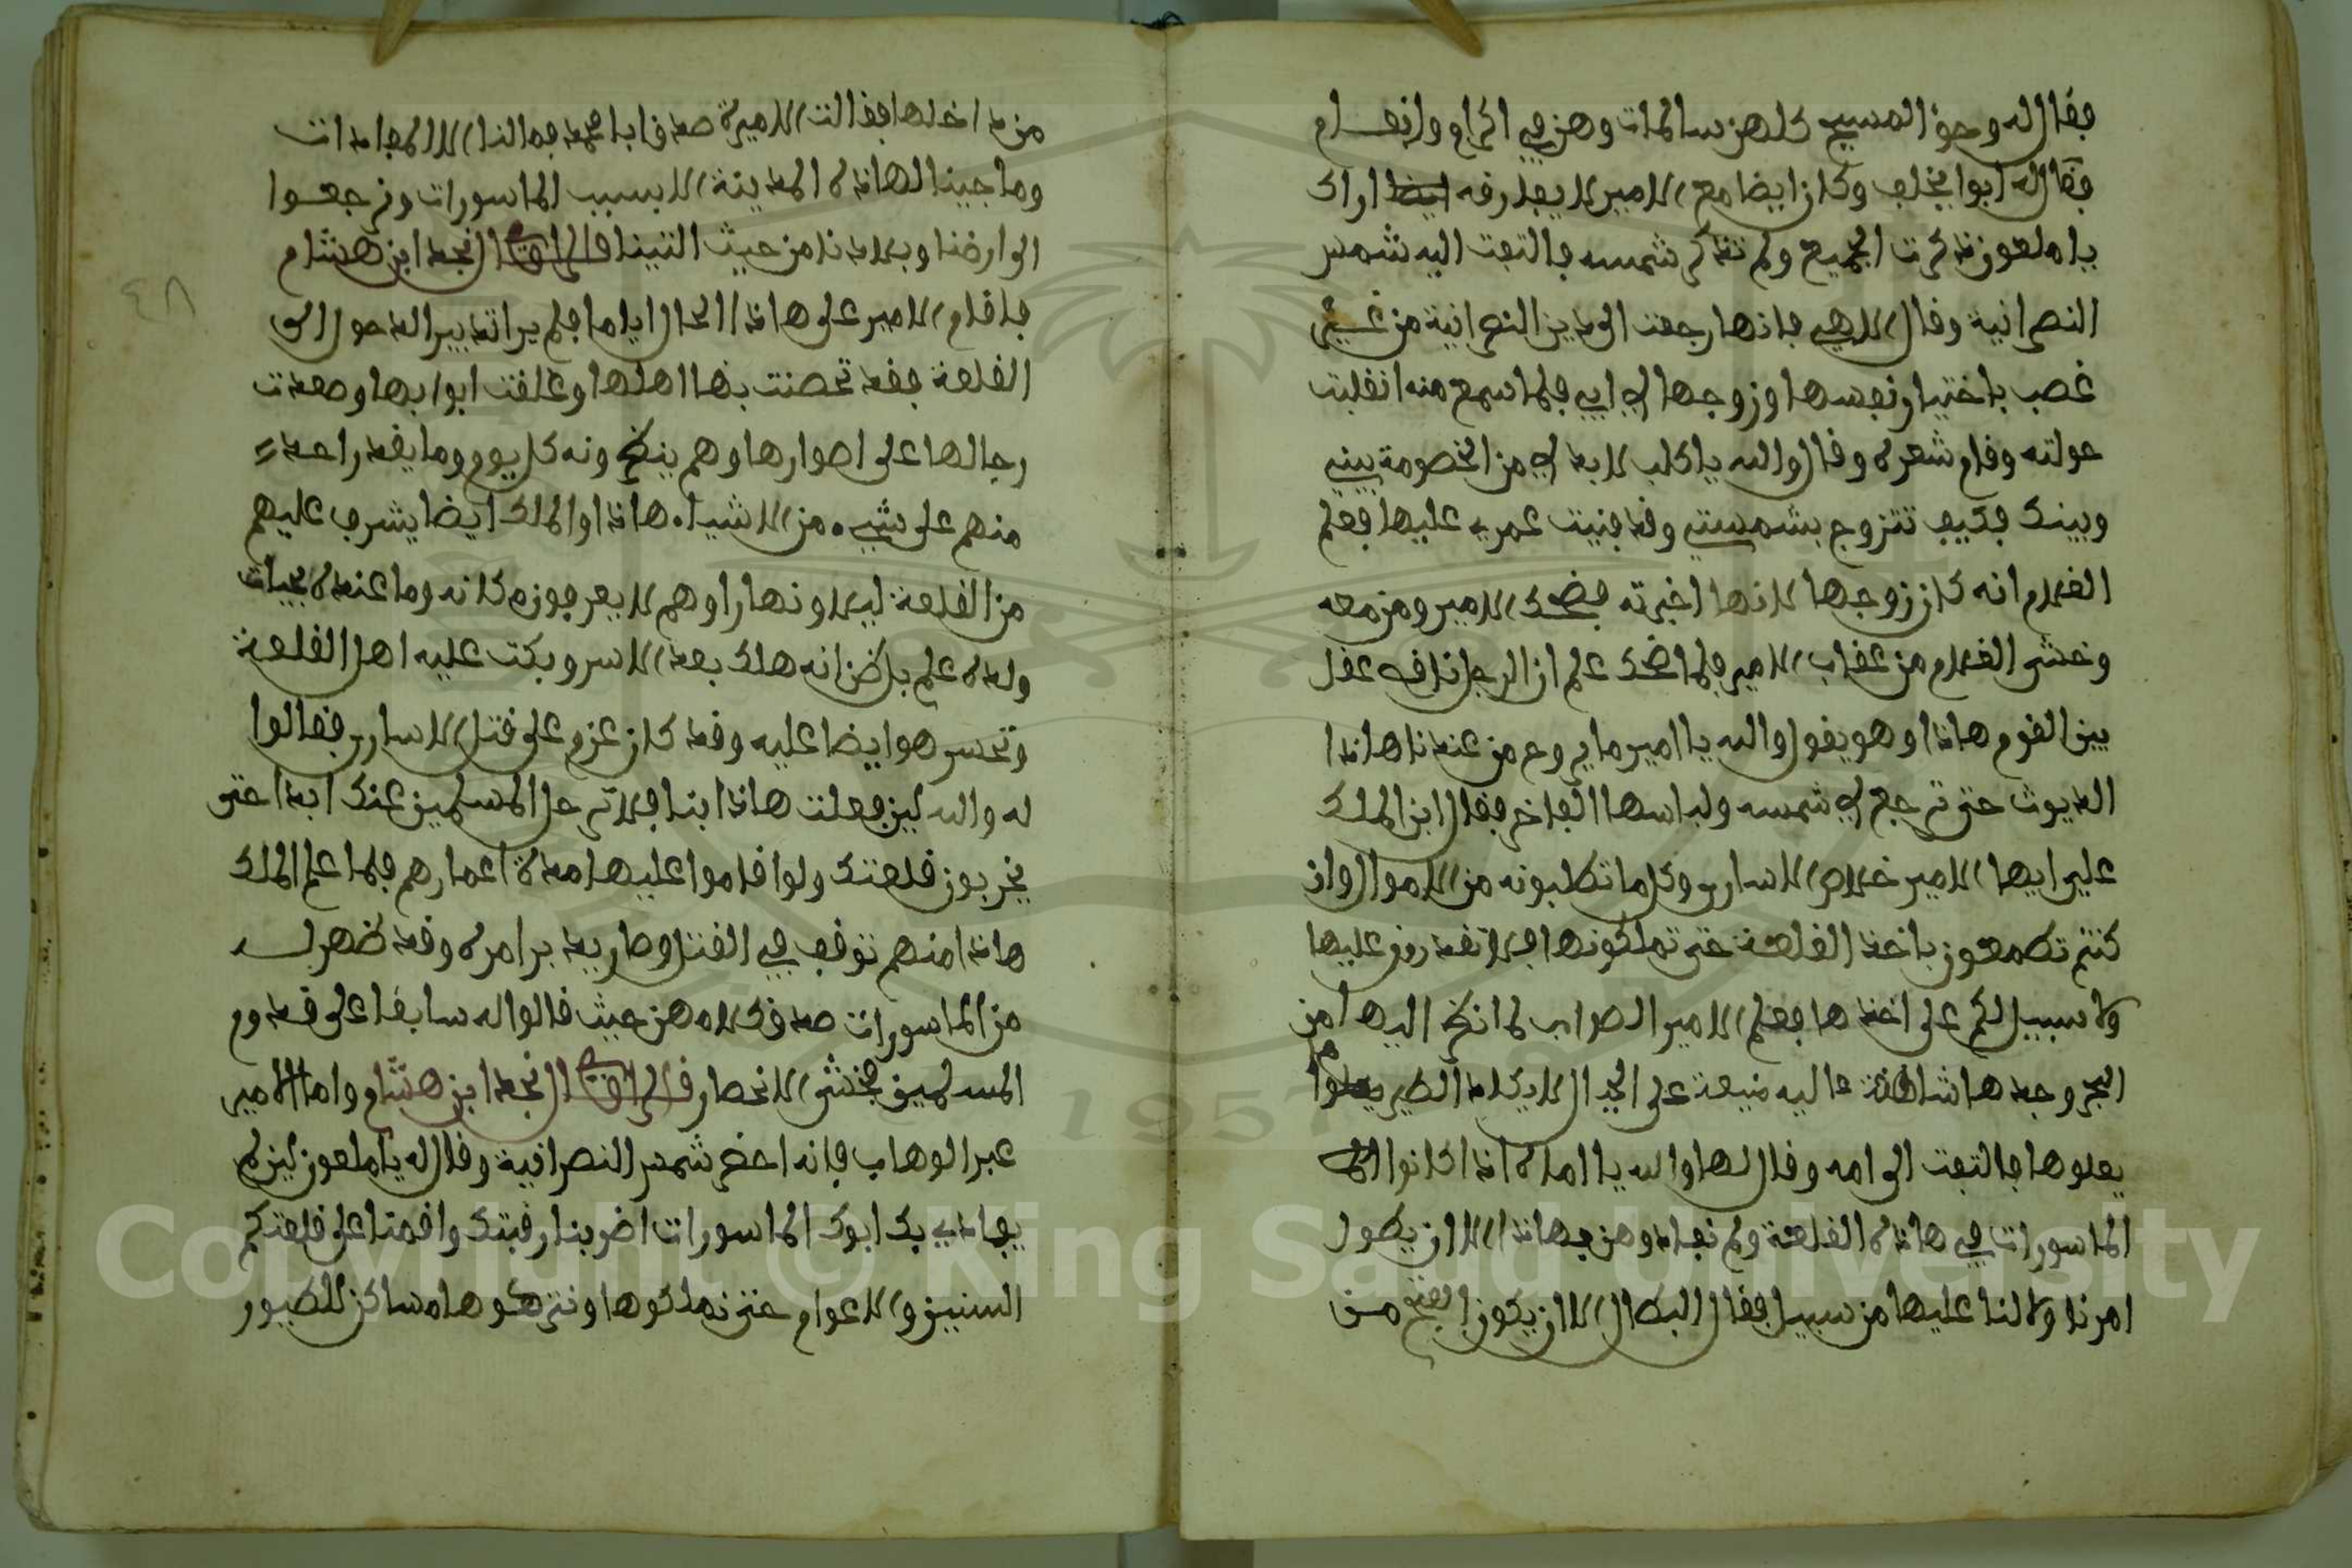 فقال له وحق المسيح كلهن سالمات وهن في اكرام وانعام
فقال له ابوا يخلف وكان ايضا مع الامير لا يفارقه اراك
يا ملعون ذكرت الجميع ولم تذكر شمسه فالتفت اليه شمس
النصرانية وقال الاهي فانها رجعت الى دين النصرانية من غير
غصب باختيار نفسها وزوجها لي ابي فلما سمع منه انقلبت
حولته وقام شعره وقال والله يا كلب لا بد لي من الخصومة بيني
وبينك فكيف تتزوج بشمستي وقد فنيت عمري عليها فعلم
الغلام انه كان زوجها لانها اخبرته فضحك الامير ومن معه
وخشى الغلام من عقاب الامير فلما ضحك علم ان الرجل ناقص عقل
بين القوم هاذا وهو يقول والله يا امير ما يروح من عندنا هاذا
الديوث حتى ترجع لي شمسه ولباسها الفاخر فقال ابن الملك
علي ايها الامير خلاص الاسارى وكل ما تطلبونه من الاموال وان
كنتم تطمعون باخذ القلعة حتى تملكونها فلا تقدرون عليها
ولا سبيل لكم على اخذها فعلم الامير الصواب لما نظر اليها من
البحر وجدها شاهقة عاليه منيعة على الجبال لا يكاد الطير
يعلوها فالتفت الى امه وقال لها والله يا اماه اذا كانوا
الماسورات في هاذه القلعة ولم نفادوهن بهاذا الا ان يطول
امرنا ولا لنا عليها من سبيل فقال البطال الا ان يكون الفتح من
من داخلها فقالت الاميرة صدق ابا محمد فما لنا الا المفادات
وما جينا لهاذه المدينة الا بسبب الماسورات ونرجعوا
الى ارضنا وبلادنا من حيث اتينا قال الراوي نجد ابن هشام
فاقام الامير على هاذا الحال اياما فلم يرا تدبير الدخول الى
القلعة فقد تحصنت بها اهلها وغلقت ابوابها وصعدت
رجالها على اصوارها وهم ينظرونه كل يوم وما يقدر احد
منهم على شيء من الاشياء هاذا والملك ايضا يشرف عليهم
من القلعة ليلا ونهارا وهم لا يعرفون مكانه وما عنده بحيات
ولده علم بل ظن انه هلك بعد الاسر وبكت عليه اهل القلعة
وتحسر هو ايضا عليه وقد كان عزم على قتل الاسارى فقالوا
له والله لين فعلت هاذا ابنا فلا ترحل المسلمين عنك ابدا حتى
يخربون قلعتك ولو اقاموا عليها مدة اعمارهم فلما علم الملك
هاذا منهم توقف في القتل وصار يدبر امره وقد ظهر له
من الماسورات صدق كلامهن حيث قالوا له سابقا على قدوم
المسلمين فخشى الانحصار قال الراوي نجد ابن هشام واما الامير
عبد الوهاب فانه احضر شمس النصرانية وقال له يا ملعون لين لم
يفادي بك ابوك الماسورات اضربنا رقبتك واقمنا على قلعتكم
السنين والاعوام حتى نملكوها ونتركوها مساكن للطيور
٤٨
Copyright © King Saud University
1957